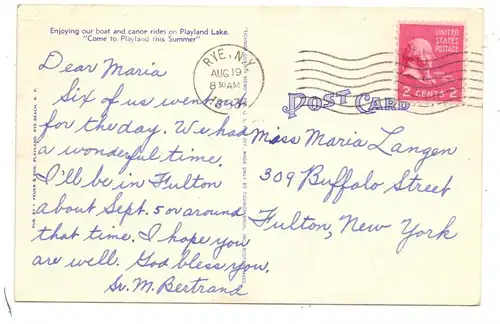 Enjoying our boat and canoe rides on Playland Lake.
"Come to Playland this Summer"
Dear Maria
Six of us went
for the day. We had
a wonderful time.
I'll be in Fulton
about Sept. 5 or around
that time. I hope you
are well. God bless you.
Sr. M. Bertrand
RYE, N.Y.
AUG 19
8 30 AM
UNITED
STATES
POSTAGE
2 CENTS 2
POST CARD
Miss Maria Langen
309 Buffalo Street
Fulton, New York